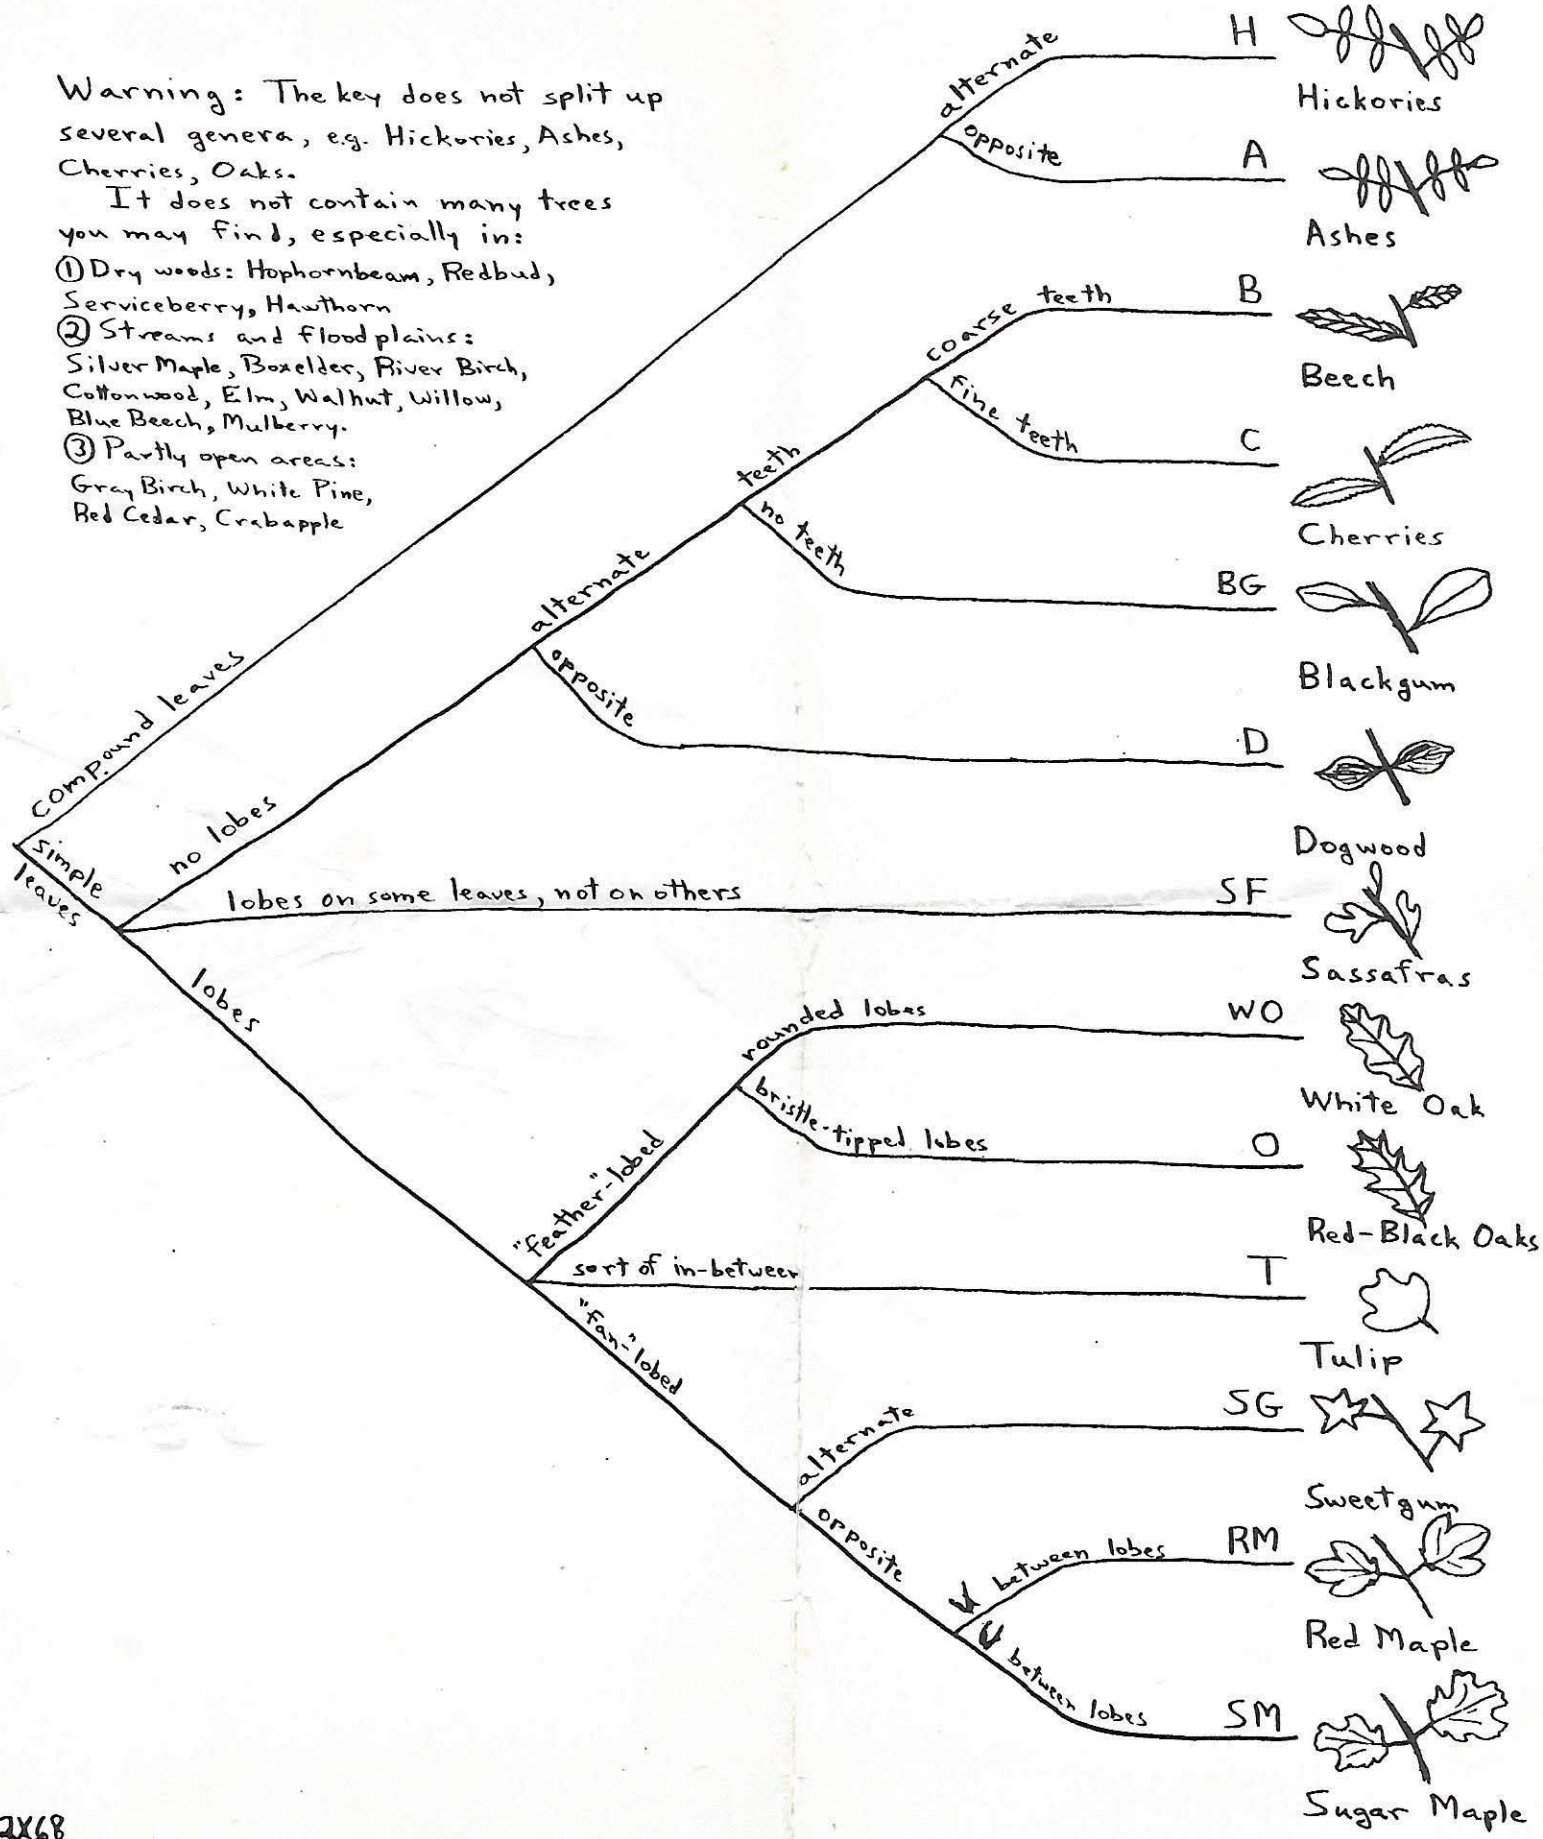 Warning: The key does not split up
several genera, e.g. Hickories, Ashes,
Cherries, Oaks.
It does not contain many trees
you may find, especially in:
① Dry woods: Hophornbeam, Redbud,
Serviceberry, Hawthorn
② Streams and floodplains:
Silver Maple, Boxelder, River Birch,
Cottonwood, Elm, Walnut, Willow,
Blue Beech, Mulberry.
③ Partly open areas:
Gray Birch, White Pine,
Red Cedar, Crabapple
compound leaves
alternate
H
Hickories
opposite
A
Ashes
simple
leaves
no lobes
alternate
teeth
coarse teeth
B
Beech
fine teeth
C
Cherries
no teeth
BG
Blackgum
opposite
D
Dogwood
lobes on some leaves, not on others
SF
Sassafras
lobes
"feather-"lobed
rounded lobes
WO
White Oak
bristle-tipped lobes
O
Red-Black Oaks
sort of in-between
T
Tulip
"fan-"lobed
alternate
SG
Sweetgum
opposite
V between lobes
RM
Red Maple
U between lobes
SM
Sugar Maple
2X68